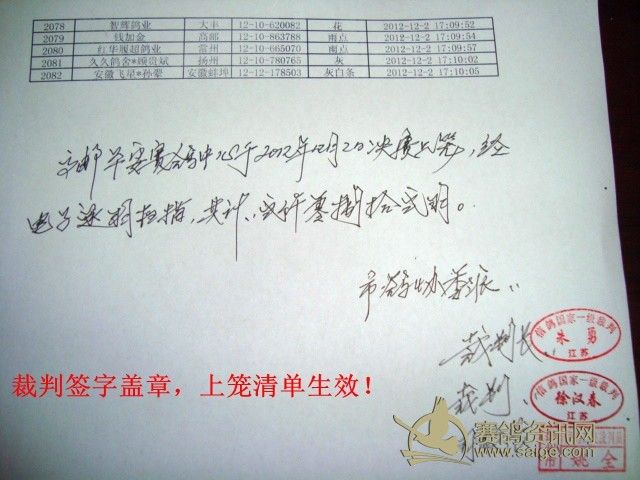 2078 智辉鸽业 大丰 12-10-620082 花 2012-12-2 17:09:52
2079 钱加金 高邮 12-10-863788 雨点 2012-12-2 17:09:54
2080 红华顺超鸽业 常州 12-10-665070 雨点 2012-12-2 17:09:57
2081 久久鸽舍*顾贵斌 扬州 12-10-780765 灰 2012-12-2 17:10:02
2082 安徽飞星*孙蒙 安徽蚌埠 12-12-178503 灰白条 2012-12-2 17:10:05
赛鸽中心于2012年12月2日决赛上笼，经
电子逐羽扫描，共计：贰仟零捌拾贰羽。
市鸽协委派：
裁判长
信鸽国家一级裁判
朱勇
江苏
裁判签字盖章，上笼清单生效！
裁判
信鸽国家一级裁判
徐汉春
江苏
赛鸽资讯网
www.saige.com